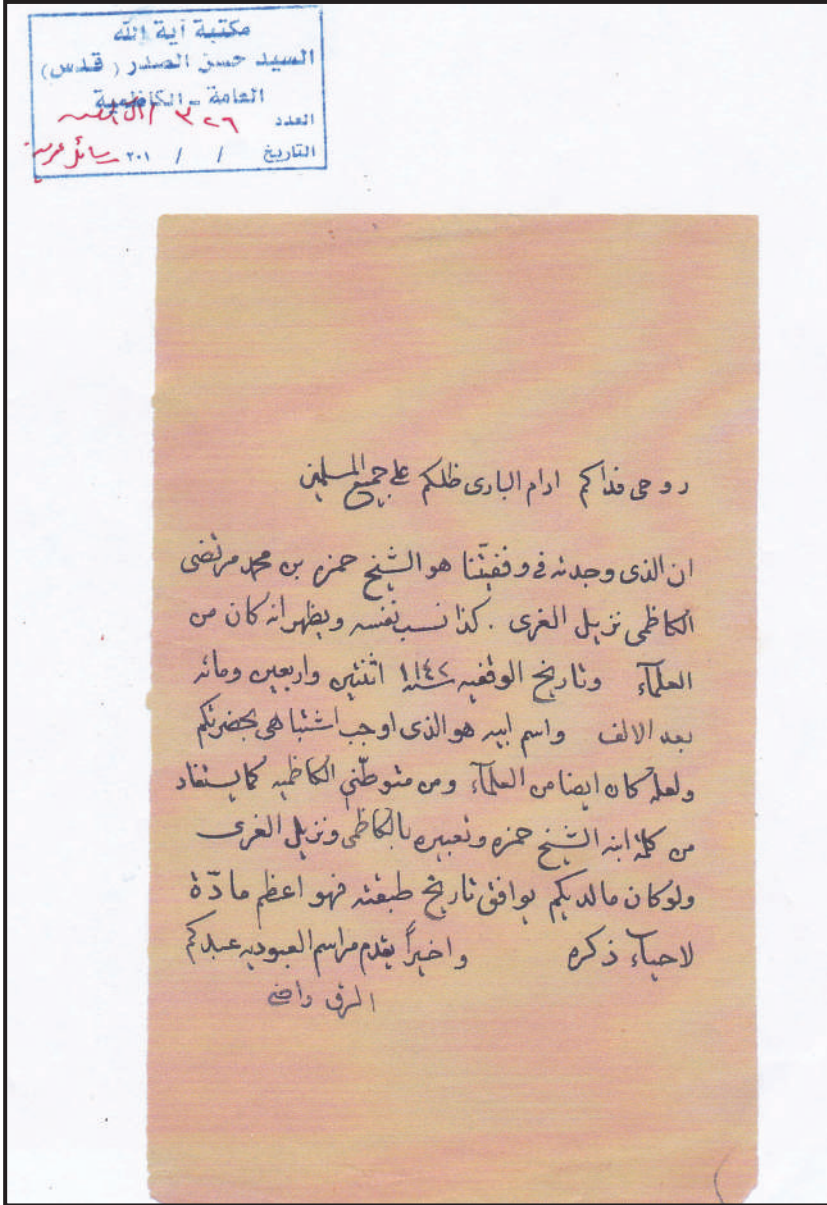 مكتبة آية الله
السيد حسن الصدر (قدس)
العامة - الكاظمية
العدد ٣٢٦
التاريخ / / ٢٠١ رسائل
روحى فداكم ادام البارى ظلكم على جميع المسلمين
ان الذى وجدته فى وقفيّتنا هو الشيخ حمزه بن محمد مرتضى
الكاظمى نزيل الغرى . كذا نسب نفسه ويظهر انه كان من
العلمآء وتاريخ الوقفيه سنة ١١٤٢ اثنتين واربعين ومائه
بعد الالف واسم ابيه هو الذى اوجب اشتباهى بحضرتكم
ولعله كان ايضا من العلمآء ومن متوطّني الكاظميه كما يستفاد
من كلمة ابنه الشيخ حمزه وتعبيره بالكاظمى ونزيل الغرى
ولو كان ما لديكم يوافق تاريخ طبقته فهو اعظم مادّة
لاحيآء ذكره واخيراً يقدم مراسم العبوديه عبدكم
الرق راضى